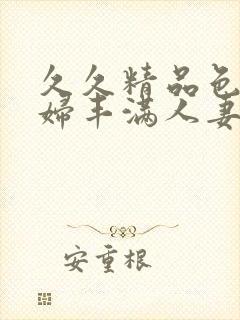 久久精品色
婦丰满人妻
安重根